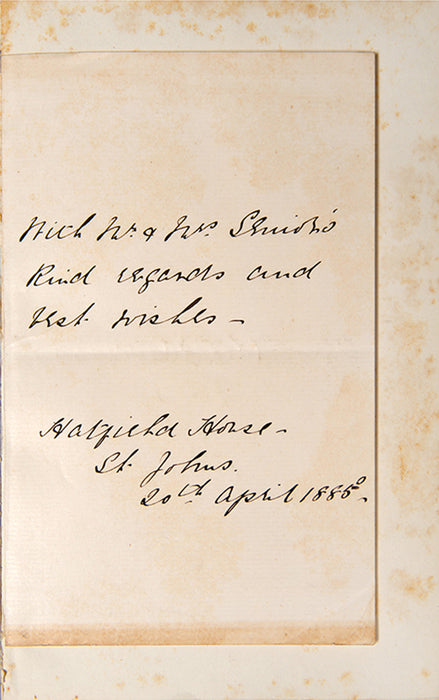 With Mr. & Mrs. Senior's
Kind regards and
best wishes —
Hatfield House —
St. Johns.
20th April 1885.